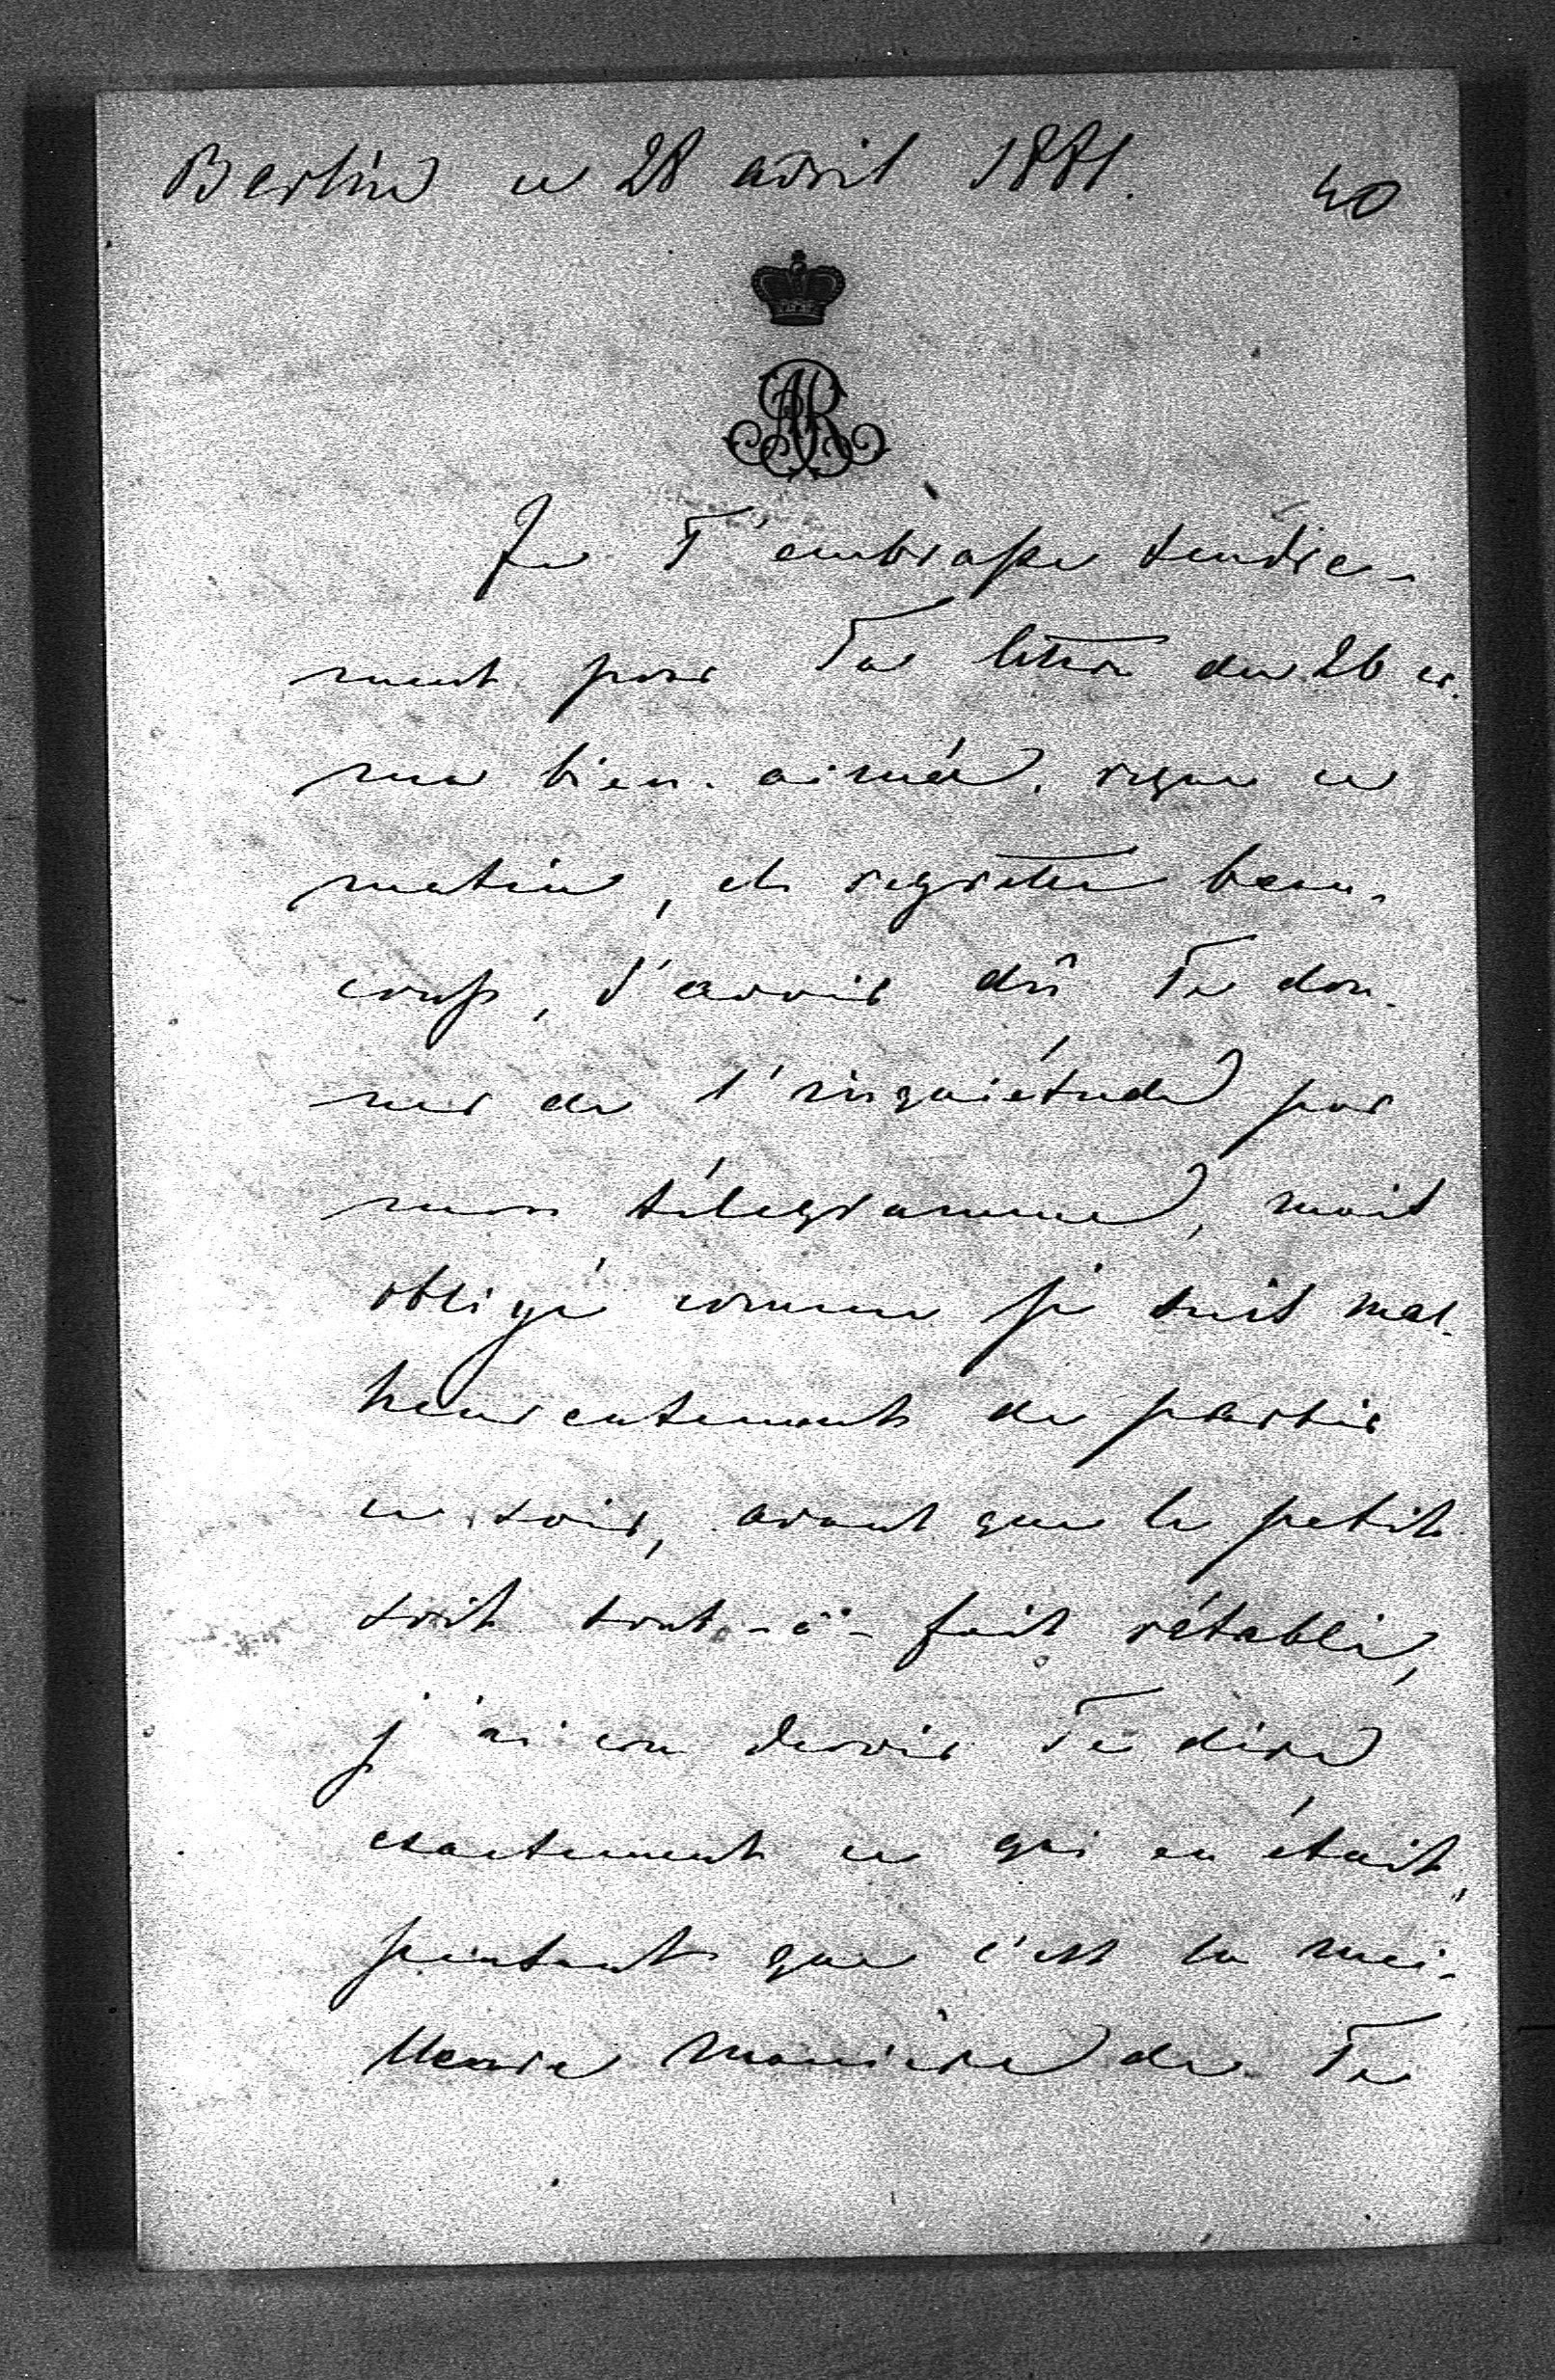 Berlin ce 28 avril 1881. 40
AR
Je T'embrasse tendre-
ment pour Ta lettre du 26 cr.
ma bien-aimée, reçue ce
matin, et regrette beau-
coup, d'avoir dû Te don-
ner de l'inquiétude par
mon télégramme, mais
obligé comme je suis mal-
heureusement de partir
ce soir, avant que le petit
soit tout-à-fait rétabli,
j'ai cru devoir Te dire
exactement ce qui en était,
pensant que c'est la mei-
lleure manière de Te